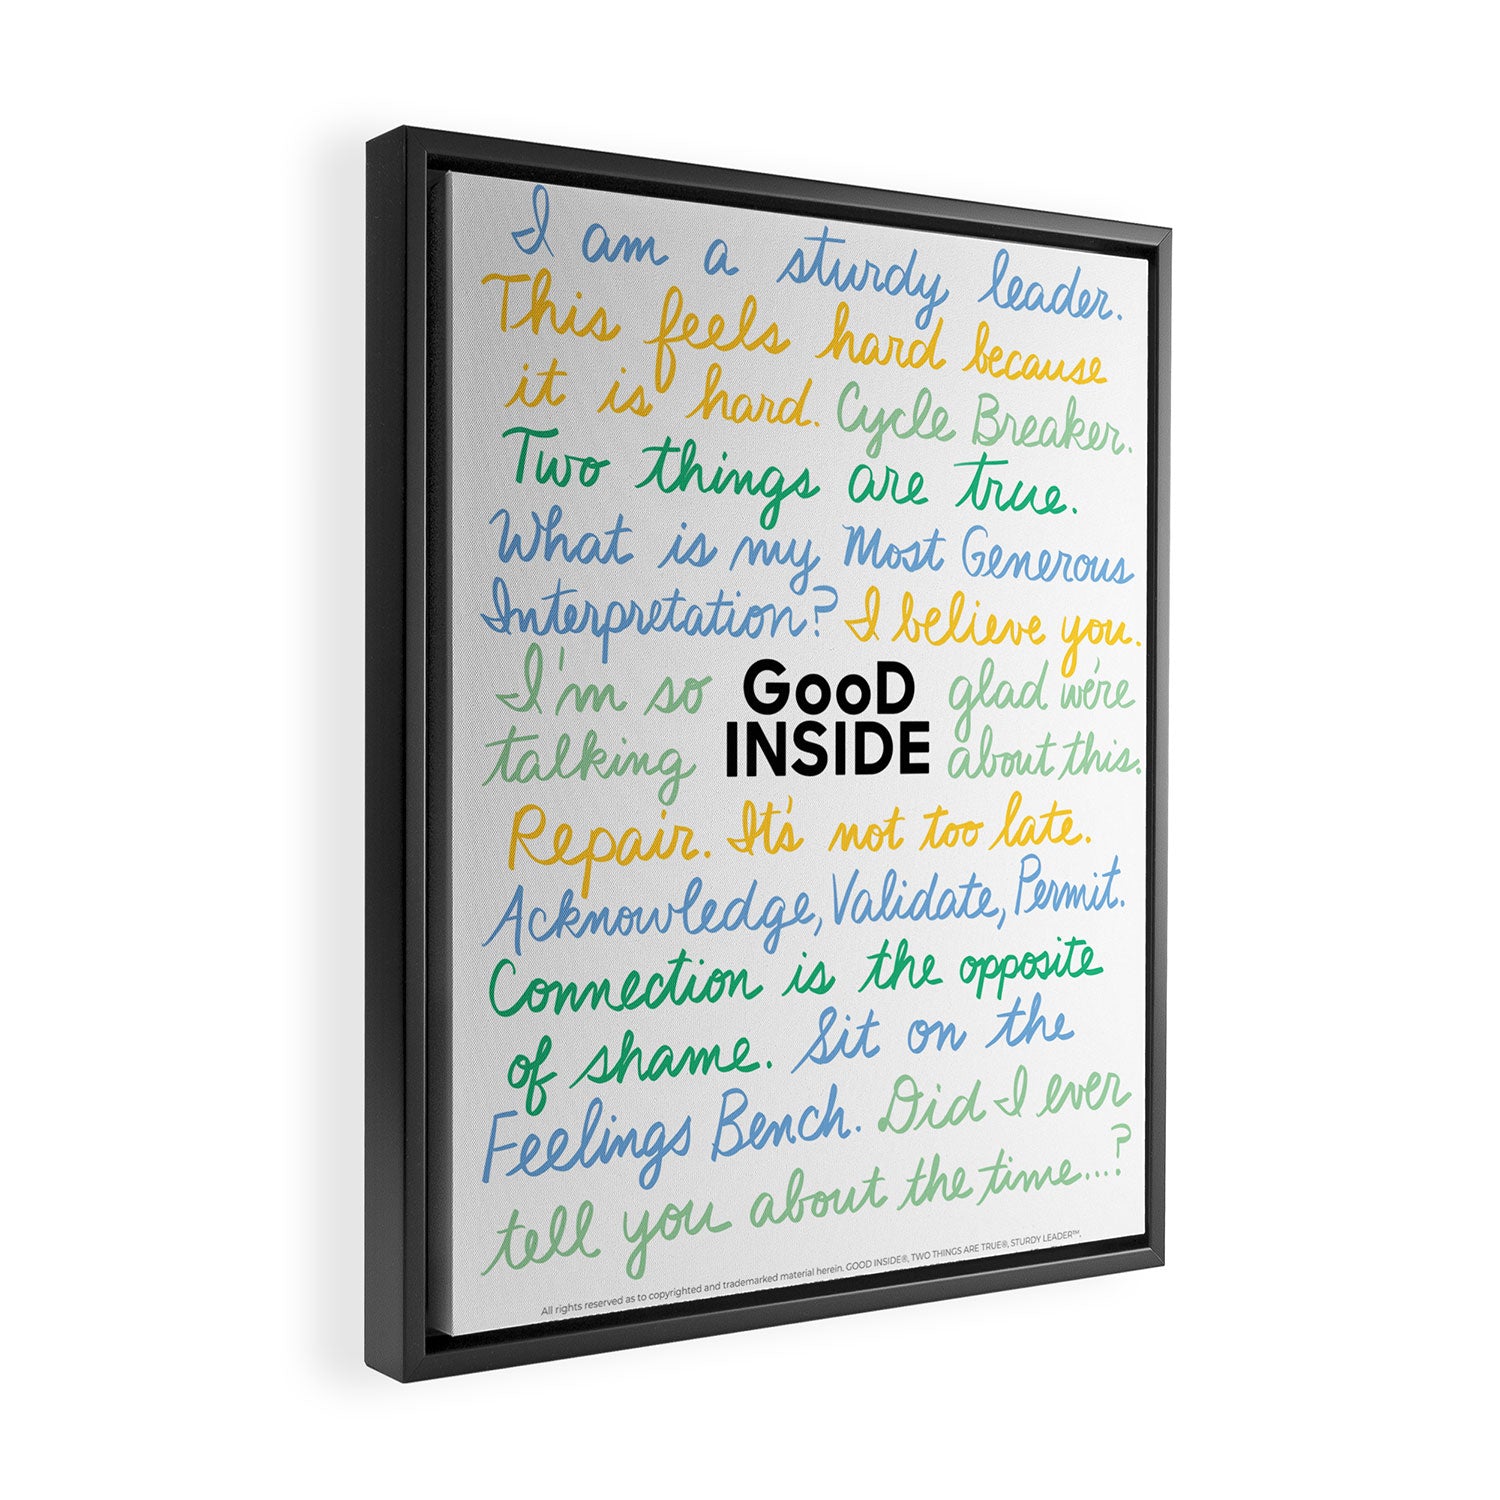 I am a sturdy leader.
This feels hard because
it is hard. Cycle Breaker.
Two things are true.
What is my Most Generous
Interpretation? I believe you.
I'm so GooD glad we're
talking INSIDE about this.
Repair. It's not too late.
Acknowledge, Validate, Permit.
Connection is the opposite
of shame. Sit on the
Feelings Bench. Did I ever
tell you about the time...?
All rights reserved as to copyrighted and trademarked material herein. GOOD INSIDE®, TWO THINGS ARE TRUE®, STURDY LEADER™.